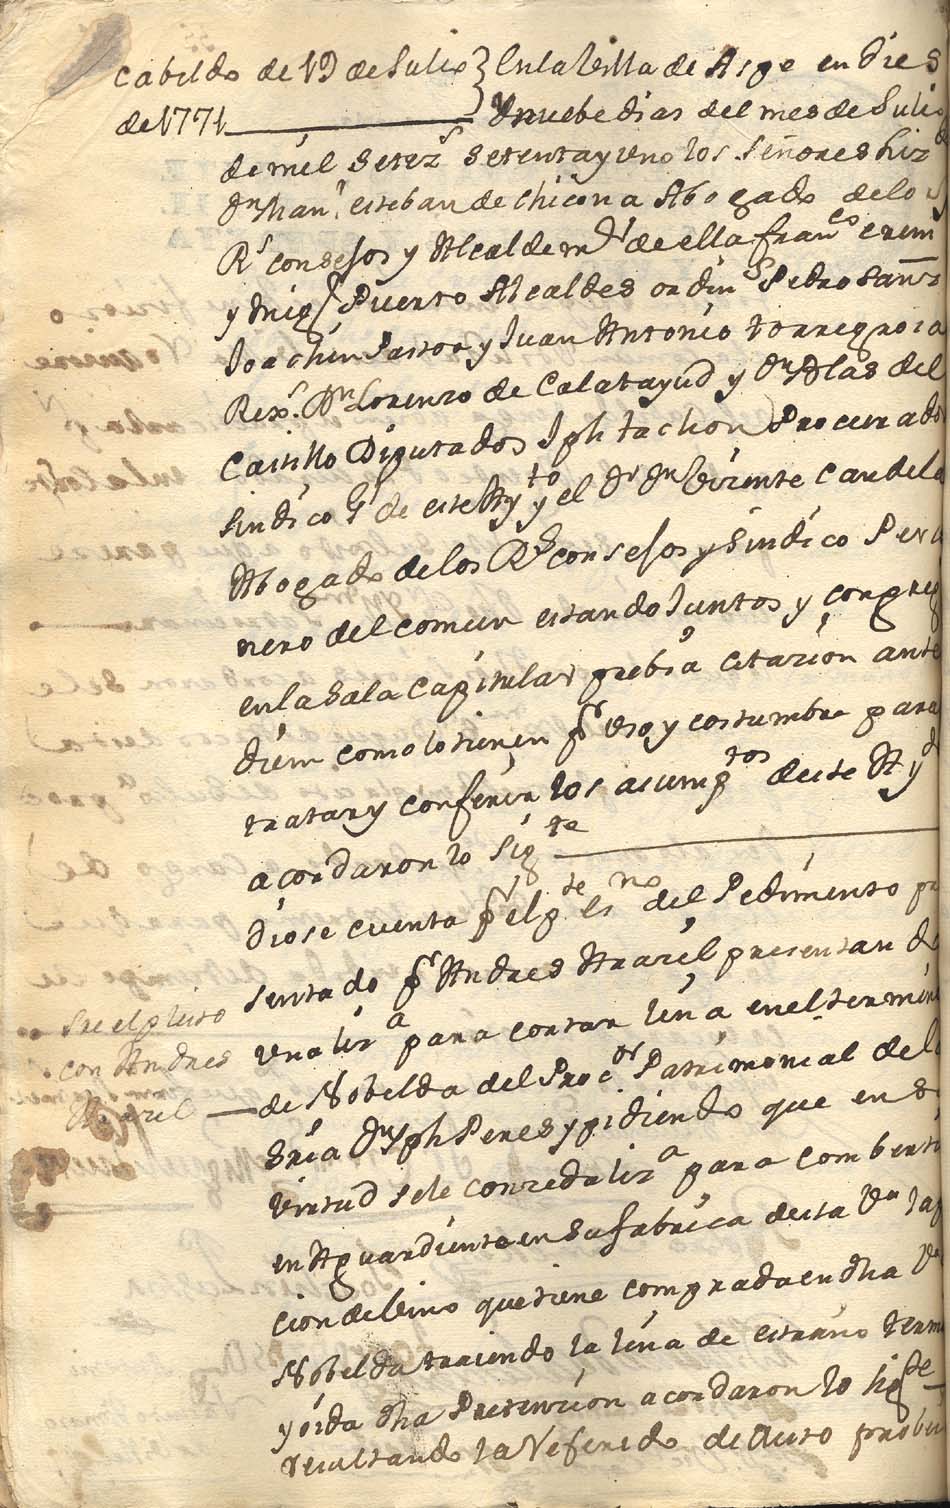 Cabildo de 19 de Julio } En la Villa de Aspe en Dies
de 1771 y nuebe dias del mes de Julio
de mil setez.s setenta y uno los Señores Liz.do
Dn Man.l esteban de Chicona Abogado de los
R.s consejos y Alcalde m.or de ella fran.co crem
y Mig.l Puerto Alcaldes ordin.s Pedro Sanz
Joachin Pastor y Juan Antonio torregrosa
Rex.s Dn Lorenzo de Calatayud y Dn Blas del
Castillo Diputados Jph tachon Procurador
Sindico G.l de este Ay.to y el Dr Dn Vizente Candela
Abogado de los R.s consejos y Sindico Perso
nero del comun estando Juntos y congreg
en la Sala Capitular prebia citazion ante
diem como lo tienen p.r uso y costumbre para
tratar y conferir los asump.tos de este Ay
acordaron lo sig.te
Diose cuenta p.r el p.te es.no del Pedimento pre
sentado p.r Andres Ararel presentando
una liz.a para cortar leña en el termino
de Nobelda del Proc.or Patrimonial de la
Sria Dn Jph Peres y pidiendo que en su
virtud se le conzeda liz.a para combertir
en Aguardiente en su fabrica de esta V.a la p
cion de Vino que tiene comprada en dha V.a
Nobelda trayendo la leña de estraño term
y oida dha Pretenzion acordaron lo sig.te
resultando la Referido de Auto probei
Sre el pleito
con Andres
Ararel